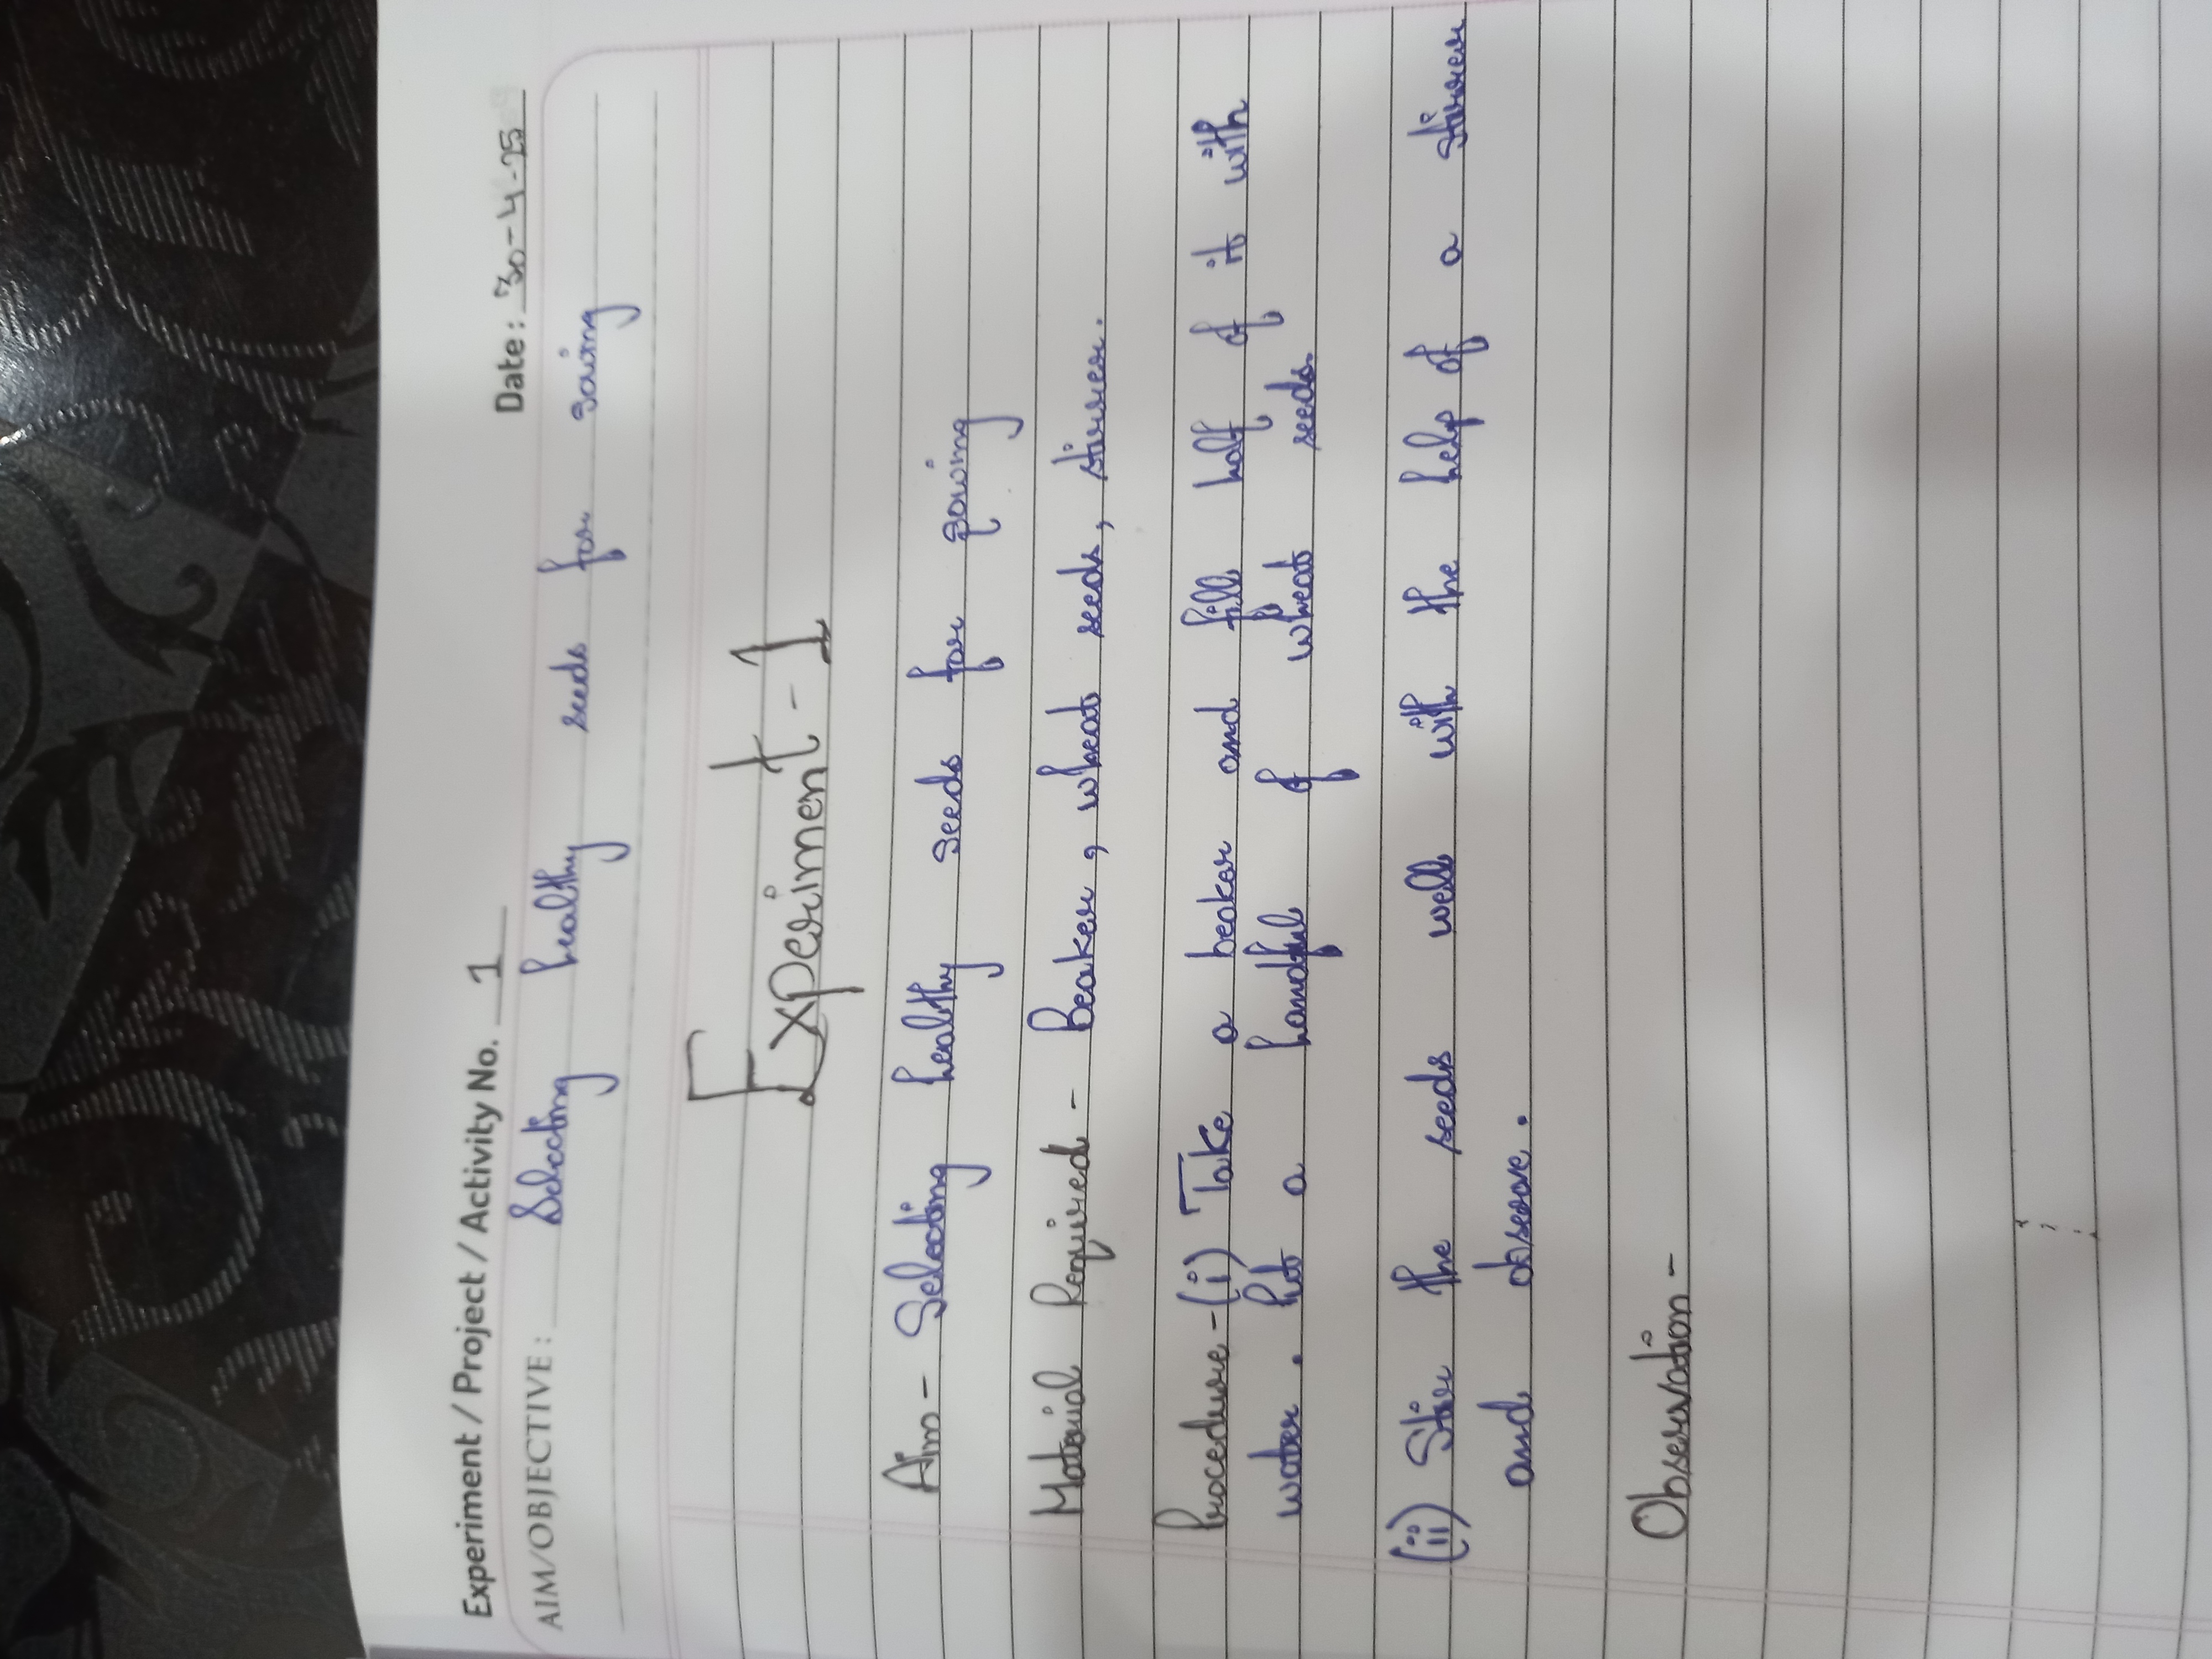 Experiment / Project / Activity No. 1 Date: 30-4-25
AIM/OBJECTIVE: Selecting healthy seeds for soing
Experiment - 1
Aim - Selecting healthy seeds for soing
Material Required - Beaker, wheat seeds, stirrer.
Procedure - (i) Take a beaker and fill half of it with
water. Put a handful of wheat seeds.
(ii) Stir the seeds well with the help of a stirrer
and observe.
Observation -